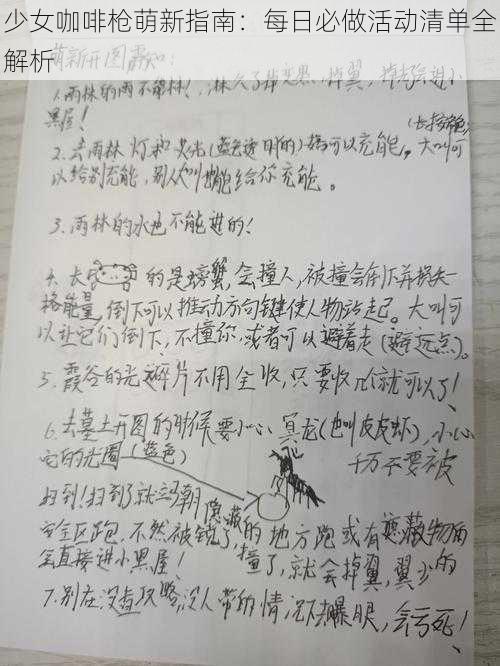 少女咖啡枪萌新指南：每日必做活动清单全
解析
萌新开图需知：
1.雨林的雨不能淋！，淋久了掉光黑，掉翼，
黑屋！
2.去雨林 灯和火光(蓝色透明的)都可以充能。大叫可
(长按角色)
以给别充能，别人大叫也能给你充能。
3.雨林的水也不能进的！
4.长 的是螃蟹，会撞人，被撞会倒下并损失一
格能量，倒下可以推动方向键使人物站起。大叫可
以让它们倒下，不撞你，或者可以避着走(避远点)。
5.霞谷的光碎片不用全收，只要收几个就可以了！
6.去墓土开图的时候要小心 冥龙(也叫皮皮虾)，小心
它的光圈(蓝色)
千万不要被
扫到！扫到了就立马朝隐藏的地方跑或有遮藏物的
安全区跑，不然被锁了，撞了，就会掉翼，翼少的
会直接进小黑屋！
7.别在没看攻略，没人带的情况下去暴眼，会亏死！